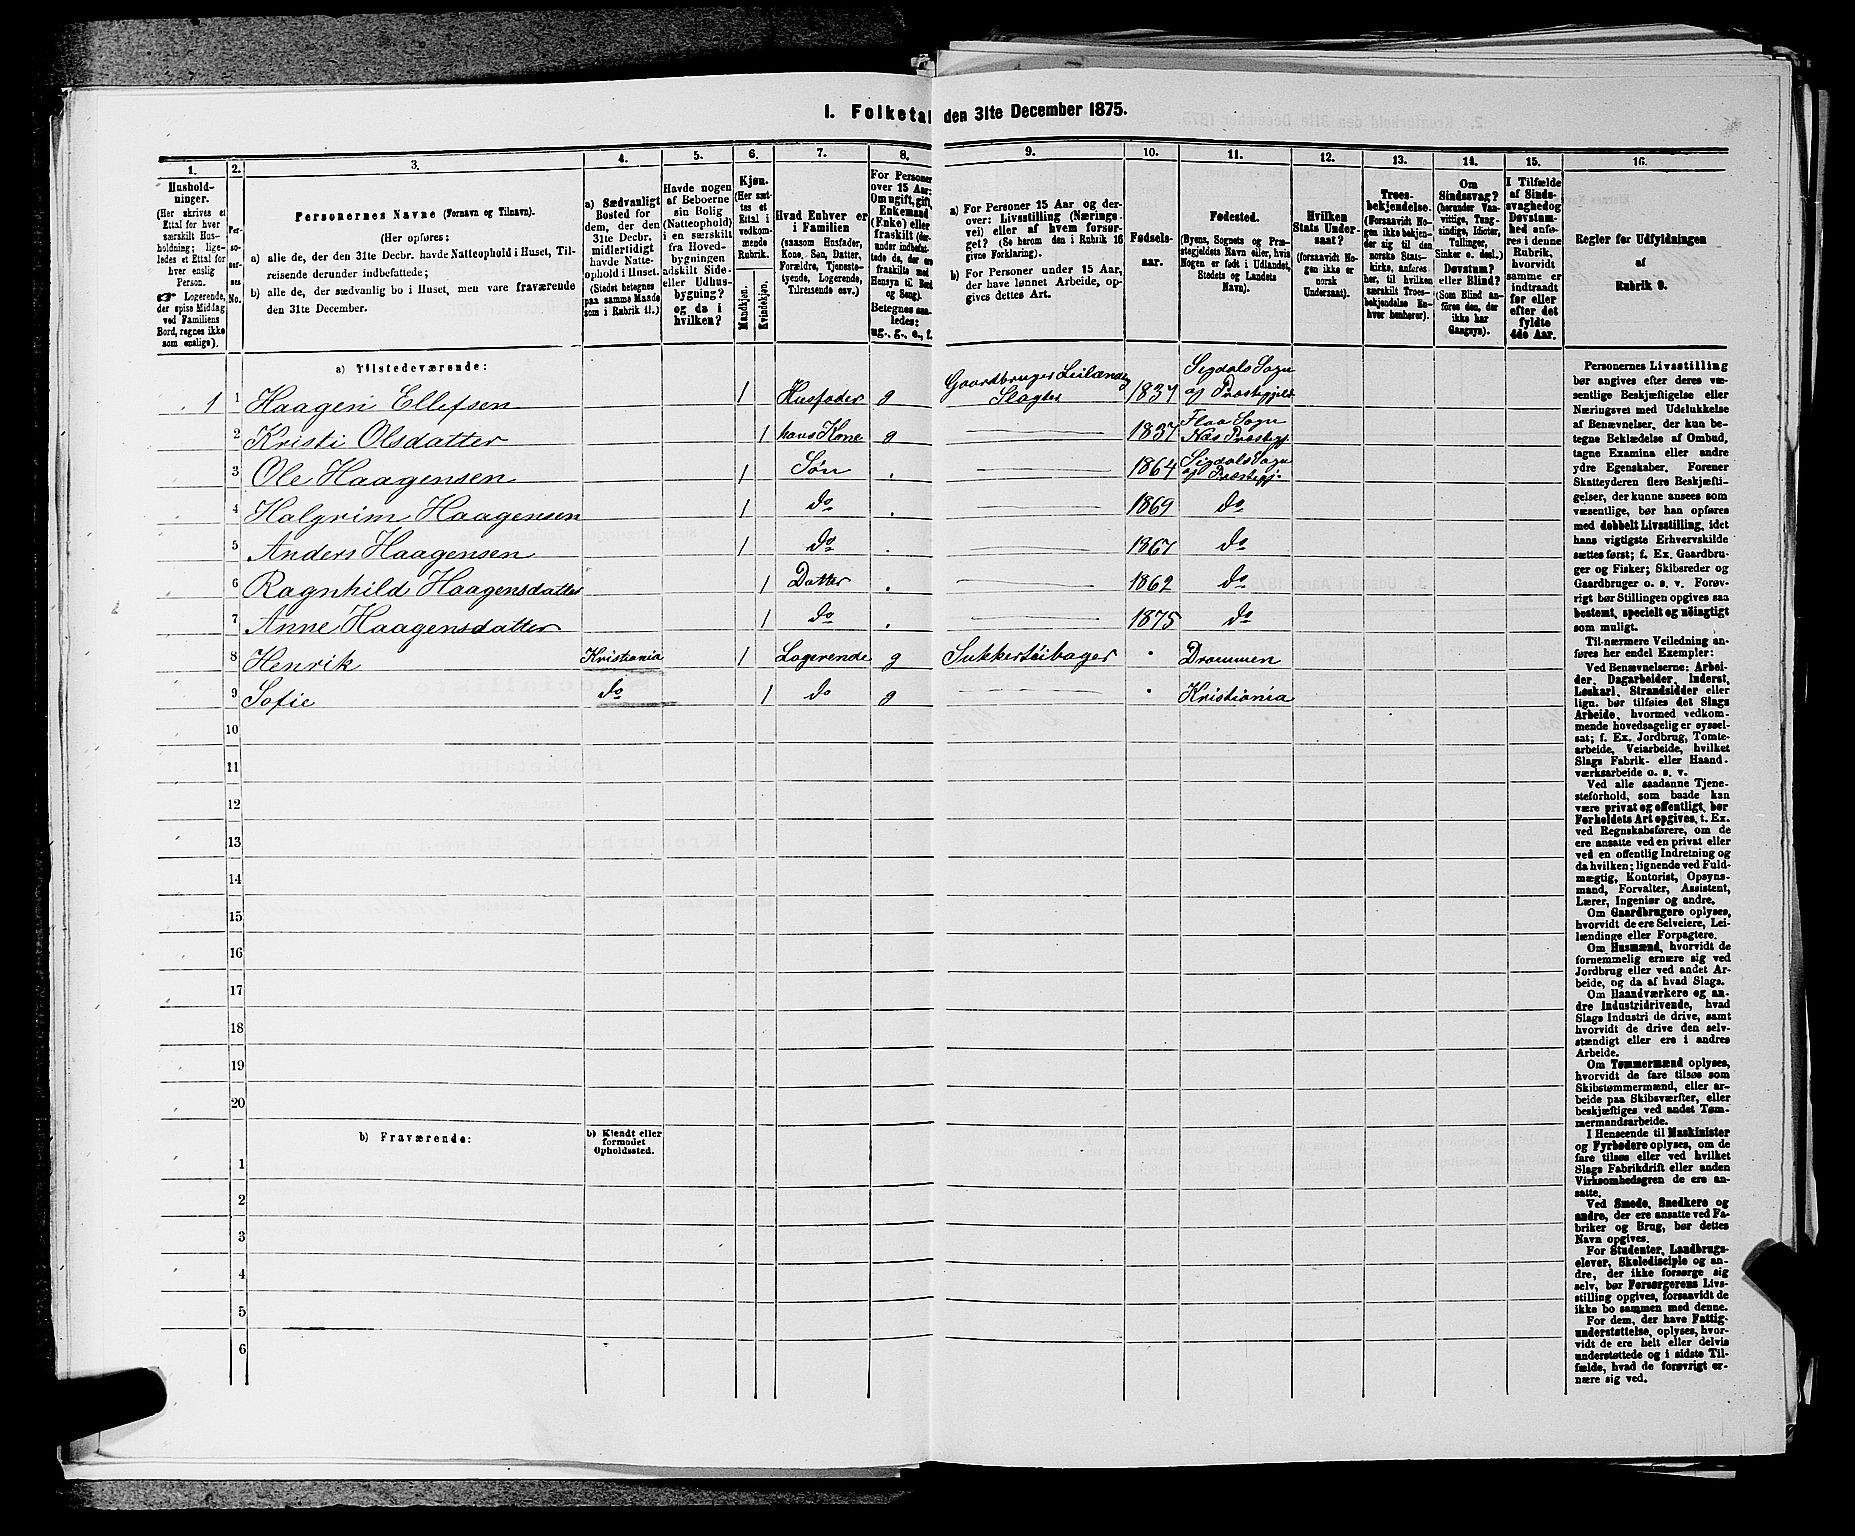 I. Folketal den 31te December 1875.
1. 2. 3. 4. 5. 6. 7. 8. 9. 10. 11. 12. 13. 14. 15. 16.
Hushold-
ninger.
(Her skrives et
Ettal for hver
særskilt Hus-
holdning; lige-
ledes et Ettal for
hver enslig
Person.
☞ Logerende,
der spise Middag
ved Familiens
Bord, regnes ikke
som enslige).
Per-
so-
ner-
nes
No.
Personernes Navne (Fornavn og Tilnavn).
(Her opføres:
a) alle de, der den 31te Decbr. havde Natteophold i Huset, Til-
reisende derunder indbefattede;
b) alle de, der sædvanlig bo i Huset, men vare fraværende
den 31te December.
a) Sædvanligt
Bosted for
dem, der den
31te Decbr.
midlertidigt
havde Natte-
ophold i Huset.
(Stedet betegnes
paa samme Maade
som i Rubrik 11.)
Havde nogen
af Beboerne
sin Bolig
(Natteophold)
i en særskilt
fra Hoved-
bygningen
adskilt Side-
eller Udhus-
bygning?
og da i
hvilken?
Kjøn.
(Her sæt-
tes et
Ettal i
vedkom-
mende
Rubrik.
Mandkjøn.
Kvindekjøn.
Hvad Enhver er
i Familien
(saasom Husfader,
Kone, Søn, Datter,
Forældre, Tjeneste-
tyende, Logerende,
Tilreisende osv.)
For Personer
over 15 Aar:
Om ugift, gift,
Enkemand
(Enke) eller
fraskilt (der-
under indbefat-
tede de, der ere
fraskilte med
Hensyn til Bord
og Seng).
Betegnes saa-
ledes:
ug., g., e., f.
a) For Personer 15 Aar og der-
over: Livsstilling (Nærings-
vei) eller af hvem forsør-
get? (Se herom den i Rubrik 16
givne Forklaring).
b) For Personer under 15 Aar,
der have lønnet Arbeide, op-
gives dettes Art.
Fødsels-
aar.
Fødested.
(Byens, Sognets og Præ-
stegjeldets Navn eller, hvis
Nogen er født i Udlandet,
Stedets og Landets
Navn).
Hvilken
Stats Under-
saat?
(forsaavidt No-
gen ikke er
norsk
Undersaat).
Troes-
bekjendelse.
(Forsaavidt Nogen
ikke bekjen-
der sig til den
norske Stats-
kirke, anføres
her, til hvilken
særskilt Troes-
bekjendelse En-
hver henhører).
Om
Sindssvag?
(herunder Van-
vittige, Tung-
sindige, Idioter,
Tullinger,
Sinker o. desl.)
Døvstum?
eller Blind?
(Som Blind an-
føres den, der
ikke har
Gangsyn).
I Tilfælde
af Sinds-
svaghed og
Døvstum-
hed anfø-
res i denne
Rubrik,
hvorvidt
samme er
indtraadt
før eller
efter det
fyldte
4de Aar.
Regler for Udfyldningen
af
Rubrik 9.
a) Tilstedeværende:
1 1 Haagen Ellefsen 1 Husfader g Gaardbruger Leilænding Slagter 1837 Sigdals Sogn og Præstegjeld
2 Kristi Olsdatter 1 hans Kone g 1837 Flaa Sogn Næs Præstegj.
3 Ole Haagensen 1 Søn . 1864 Sigdals Sogn og Præstegj.
4 Halgrim Haagensen 1 do . 1869 do
5 Anders Haagensen 1 do . 1867 do
6 Ragnhild Haagensdatter 1 Datter . 1862 do
7 Anne Haagensdatter 1 do . 1875 do
8 Henrik Kristiania 1 Logerende g Sukkertøibager " Drammen
9 Sofie do 1 do g " Kristiania
10
11
12
13
14
15
16
17
18
19
20
b) Fraværende:
b) Kjendt eller
formodet
Opholdssted.
1
2
3
4
5
6
Personernes Livsstilling
bør angives efter deres væ-
sentlige Beskjæftigelse eller
Næringsvei med Udelukkelse
af Benævnelser, der kun be-
tegne Beklædelse af Ombud,
tagne Examina eller andre
ydre Egenskaber. Forener
Skatteyderen flere Beskjæfti-
gelser, der kunne ansees som
væsentlige, bør han opføres
med dobbelt Livsstilling, idet
hans vigtigste Erhvervskilde
sættes først; f. Ex. Gaardbru-
ger og Fisker; Skibsreder og
Gaardbruger o. s. v. Forøv-
rigt bør Stillingen opgives saa
bestemt, specielt og nøiagtigt
som muligt.
Til nærmere Veiledning an-
føres her endel Exempler:
Ved Benævnelserne: Arbei-
der, Dagarbeider, Inderst,
Løskarl, Strandsidder eller
lign. bør tilføies det Slags
Arbeide, hvormed vedkom-
mende hovedsagelig er syssel-
sat; f. Ex. Jordbrug, Tomte-
arbeide, Veiarbeide, hvilket
Slags Fabrik- eller Haand-
værksarbeide o. s. v.
Ved alle saadanne Tjene-
steforhold, som baade kan
være privat og offentligt, bør
Forholdets Art opgives, t. Ex.
ved Regnskabsførere, om de
ere ansatte ved en privat eller
ved en offentlig Indretning og
da hvilken; lignende ved Fuld-
mægtig, Kontorist, Opsyns-
mand, Forvalter, Assistent,
Lærer, Ingeniør og andre.
Om Gaardbrugere oplyses,
hvorvidt de ere Selveiere, Lei-
lændinge eller Forpagtere.
Om Husmænd, hvorvidt de
fornemmelig ernære sig ved
Jordbrug eller ved andet Ar-
beide, og da af hvad Slags.
Om Haandværkere og an-
dre Industridrivende, hvad
Slags Industri de drive, samt
hvorvidt de drive den selv-
stændigt eller ere i andres
Arbeide.
Om Tømmermænd oplyses,
hvorvidt de fare tilsøs som
Skibstømmermænd, eller ar-
beide paa Skibsværfter, eller
beskjæftiges ved andet Tøm-
mermandsarbeide.
I Henseende til Maskinister
og Fyrbødere oplyses, om de
fare tilsøs eller ved hvilket
Slags Fabrikdrift eller anden
Virksomhedsgren de ere an-
satte.
Ved Smede, Snedkere og
andre, der ere ansatte ved Fa-
briker og Brug, bør dettes
Navn opgives.
For Studenter, Landbrugs-
elever, Skoledisciple og an-
dre, der ikke forsørge sig
selv, bør Forsørgerens Livs-
stilling opgives, forsaavidt de
ikke bo sammen med denne.
For dem, der have Fattig-
understøttelse, oplyses, hvor-
vidt de ere helt eller delvis
understøttede og i sidste Til-
fælde, hvad de forøvrigt er-
nære sig ved.